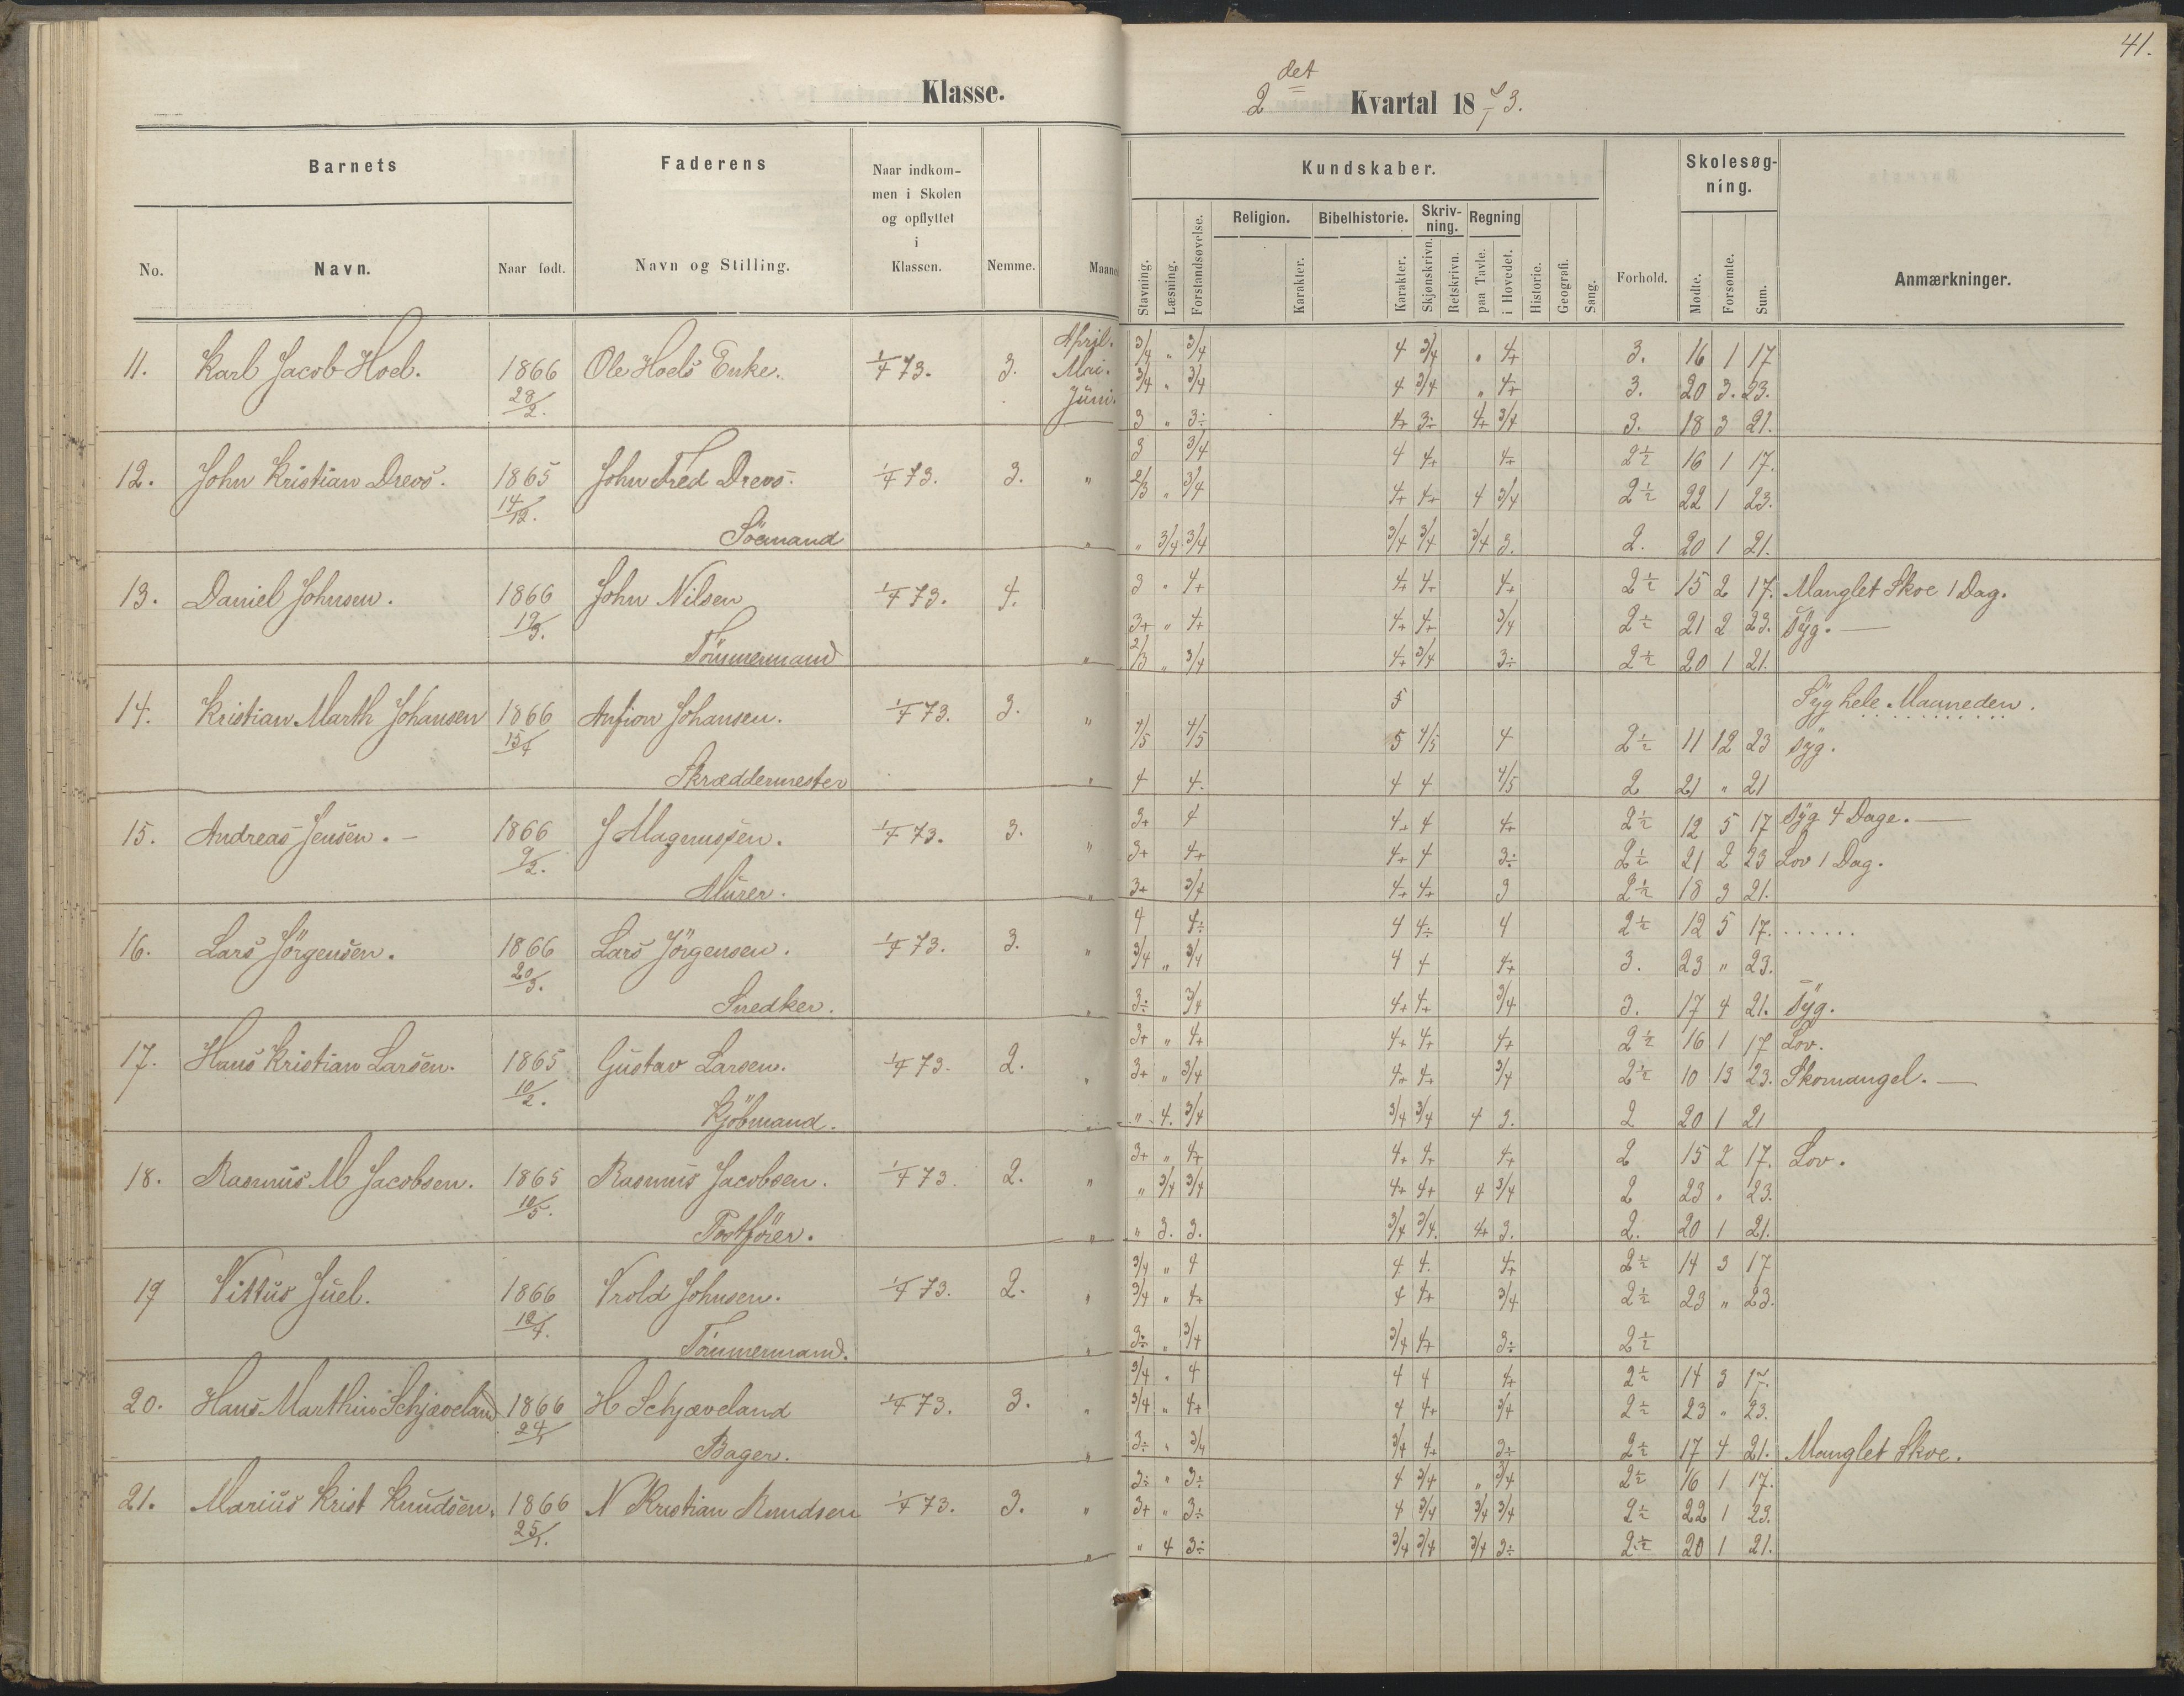 41.
Klasse.
2 det Kvartal 1873.
Barnets
Faderens
Naar indkom-
men i Skolen
og opflyttet
i
Klassen.
No.
Navn.
Naar født.
Navn og Stilling.
Nemme.
Maaned
Kundskaber.
Stavning.
Læsning.
Forstandsøvelse.
Religion.
Karakter.
Bibelhistorie.
Karakter.
Skriv-
ning.
Skjønskrivn.
Retskrivn.
Regning
paa Tavle.
i Hovedet.
Historie.
Geografi.
Sang.
Forhold.
Skolesøg-
ning.
Mødte.
Forsømte.
Sum.
Anmærkninger.
11. Karl Jacob Hoel. 1866 28/2. Ole Hoels Enke. 1/4 73. 3.
April. 3/4 " 3/4 4 3/4 " 4+ 3. 16 1 17
Mai. 3/4 " 3/4 4 3/4 " 4+ 3. 20 3. 23.
Juni. 3 " 3÷ 4+ 3÷ 4+ 3/4 3. 18 3 21.
12. John Kristian Drevs. 1865 14/12. John Fred Drevs. Söemand 1/4 73. 3.
3 3/4 4 4+ 4+ 2½ 16 1 17.
" 2/3 " 3/4 4+ 4+ 4 3/4 2½ 22 1 23.
" " 3/4 3/4 3/4 3/4 3/4 3. 2. 20 1 21.
13. Daniel Johnsen. 1866 19/3. John Nilsen Tömmermand 1/4 73. 4.
3 " 4+ 4+ 4+ 4+ 2½ 15 2 17. Manglet Skoe 1 Dag.
3+ " 4+ 4+ 4+ 3/4 2½ 21 2 23. Syg. —
" 2/3 " 3/4 4+ 3/4 3÷ 2½ 20 1 21.
14. Kristian Marth Johansen 1866 15/4 Anfion Johansen. Skræddermester 1/4 73. 3.
5 Syg hele Maaneden.
" 4/5 4/5 5 4/5 4 2½ 11 12 23 Syg.
" 4 4. 4 4 4/5 2 21 " 21
15. Andreas Jensen. – 1866 9/2. J Magnussen. Murer. 1/4 73. 3.
3+ 4 4+ 4 4+ 2½ 12 5 17 Syg 4 Dage. —
" 3+ 4+ 4+ 4 3÷ 2½ 21 2 23 Lov 1 Dag.
" 3+ 3/4 4+ 4+ 3 2½ 18 3 21.
16. Lars Jörgensen. 1866 20/3. Lars Jörgensen. Snedker. 1/4 73. 3.
4 4÷ 4 4÷ 4 2½ 12 5 17. ......
" 3/4 " 3/4 4 4 4+ 3. 23 " 23.
" 3÷ 3/4 4+ 4+ 3/4 3. 17 4 21. Syg.
17. Hans Kristian Larsen. 1865 10/2. Gustav Larsen. Kjöbmand. 1/4 73. 2.
3+ " 4+ 4+ 4+ 4+ 2½ 16 1 17 Lov.
" 3+ " 3/4 4+ 4+ 3/4 2½ 10 13 23. Skomangel. —
" " 4. 3/4 3/4 3/4 4 3. 2 20 1 21
18. Rasmus M Jacobsen. 1865 10/5. Rasmus Jacobsen. Postförer. 1/4 73. 2.
3+ " 4+ 4+ 4+ 4+ 2 15 2 17. Lov.
" " 3/4 3/4 4+ 4+ 4 3/4 2 23 " 23.
" " 3. 3. 3/4 3/4. 4+ 3. 2. 20 1 21.
19 Vittus Juel. 1866 12/4. Vrold Johnsen. Tömmermand. 1/4 73. 2.
3/4 " 4 4 4. 4+ 2½ 14 3 17
" 3/4 " 4+ 4 4+ 3/4 2½ 23 " 23.
" 3÷ " 3/4 3/4 4+ 3÷ 2½
20. Hans Marthin Schjæveland 1866 24/1 H Schjæveland Bager. 1/4 73. 3.
3/4 " 4 4 4 4+ 2½ 14 3 17.
" 3/4 " 4+ 4 4+ 3/4 2½ 23 " 23.
" 3÷ " 3/4 3/4 4+ 3÷ 2½ 17 4 21. Manglet Skoe.
21. Marius Krist Knudsen. 1866 25/1. N Kristian Knudsen 1/4 73. 3.
3÷ " 3÷ 4 3/4 " 3/4 2½ 16 1 17.
" 3+ " 3÷ 4 3/4 3/4 3/4 2½ 22 1 23.
" " 4 3÷ 3/4 3/4 3/4 3÷ 2½ 20 1 21.